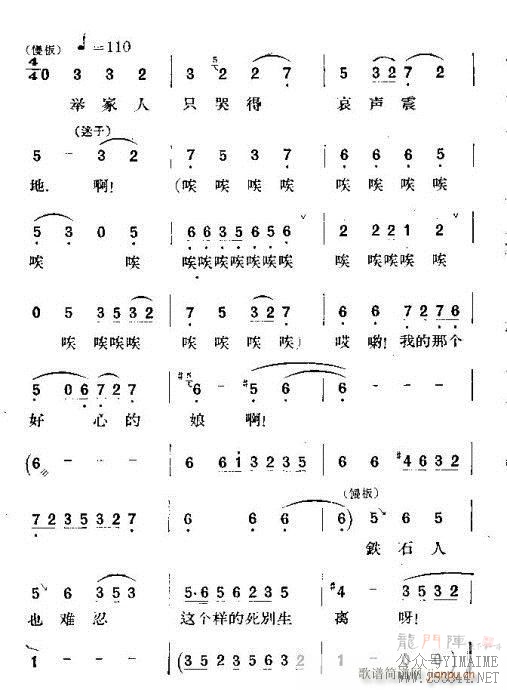 (慢板) ♩=110
4/4 0 3 3 2 | 3 5 2 2 7 | 5 3 2 7 2 |
举家人 只哭得 哀声震
(迷子)
5 - 3 2 | 7 5 7 7 | 6 6 6 5 |
地 啊! (唉唉唉唉 唉唉唉唉
5 3 0 5 | 6 6 3 5 6 5 6 | 2 2 2 1 2 |
唉 唉 唉唉唉唉唉唉唉 唉唉唉唉
0 5 3 5 3 2 | 7 5 3 2 7 | 6 6 7 2 7 6 |
唉 唉唉唉 唉唉唉唉) 哎 哟! 我的那个
5 0 6 7 2 7 | #5 6 - #5 6 |
好 心的 娘 啊!
(6 - - - | 6 6 1 3 2 3 5 | 6 6 #4 6 3 2 |
7 2 3 5 3 2 7 | 6 6 6 | 6) 5 6 5 |
(慢板)
鉄石人
5 6 3 5 3 | 5·6 5 6 2 3 5 | #4 - 3 5 3 2 |
也难忍 这个样的死别生 离 呀!
1 - - - | (3 5 2 3 5
龍門陣
公众号YIMAIME
歌谱简谱网